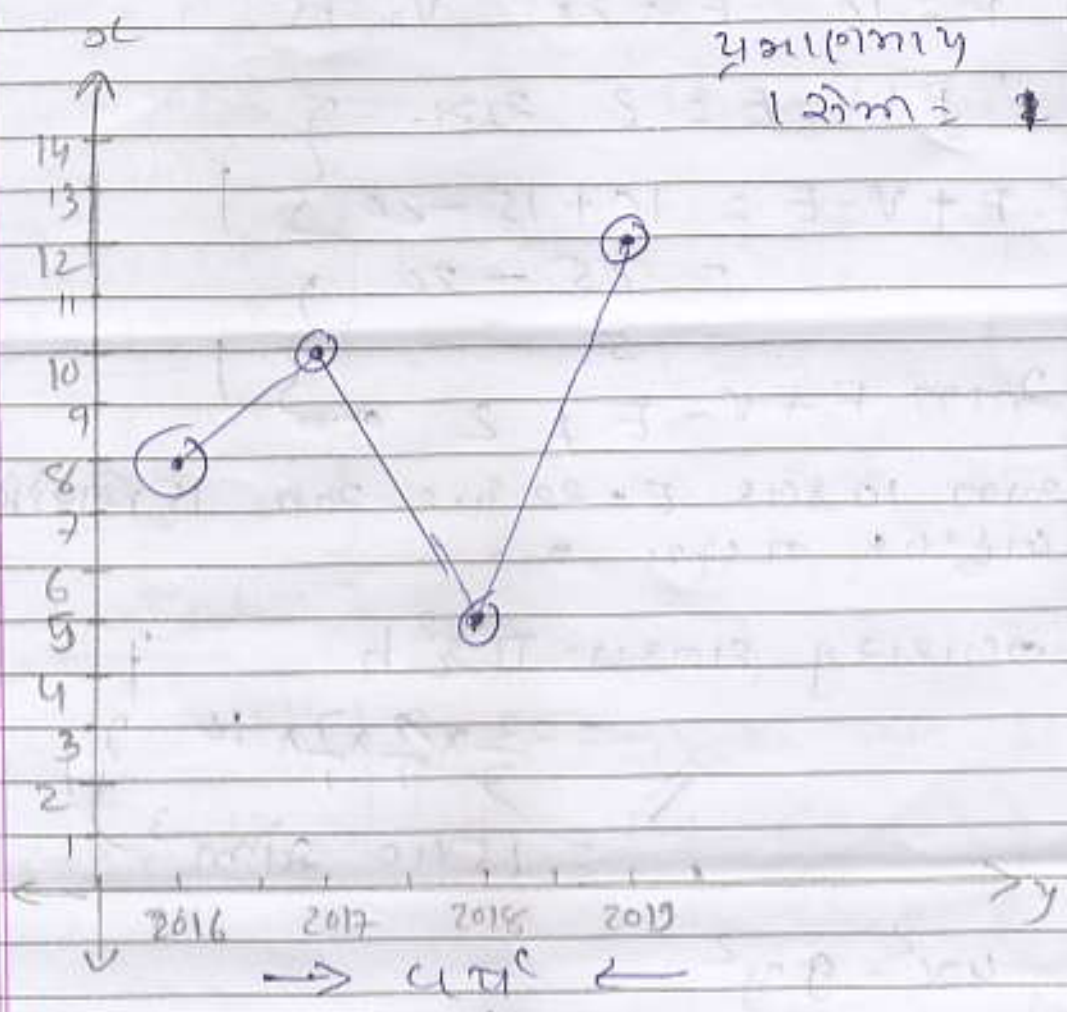 x
પ્રમાણમાપ
1 સેમી =
14
13
12
11
10
9
8
7
6
5
4
3
2
1
y
2016 2017 2018 2019
→ વર્ષ ←